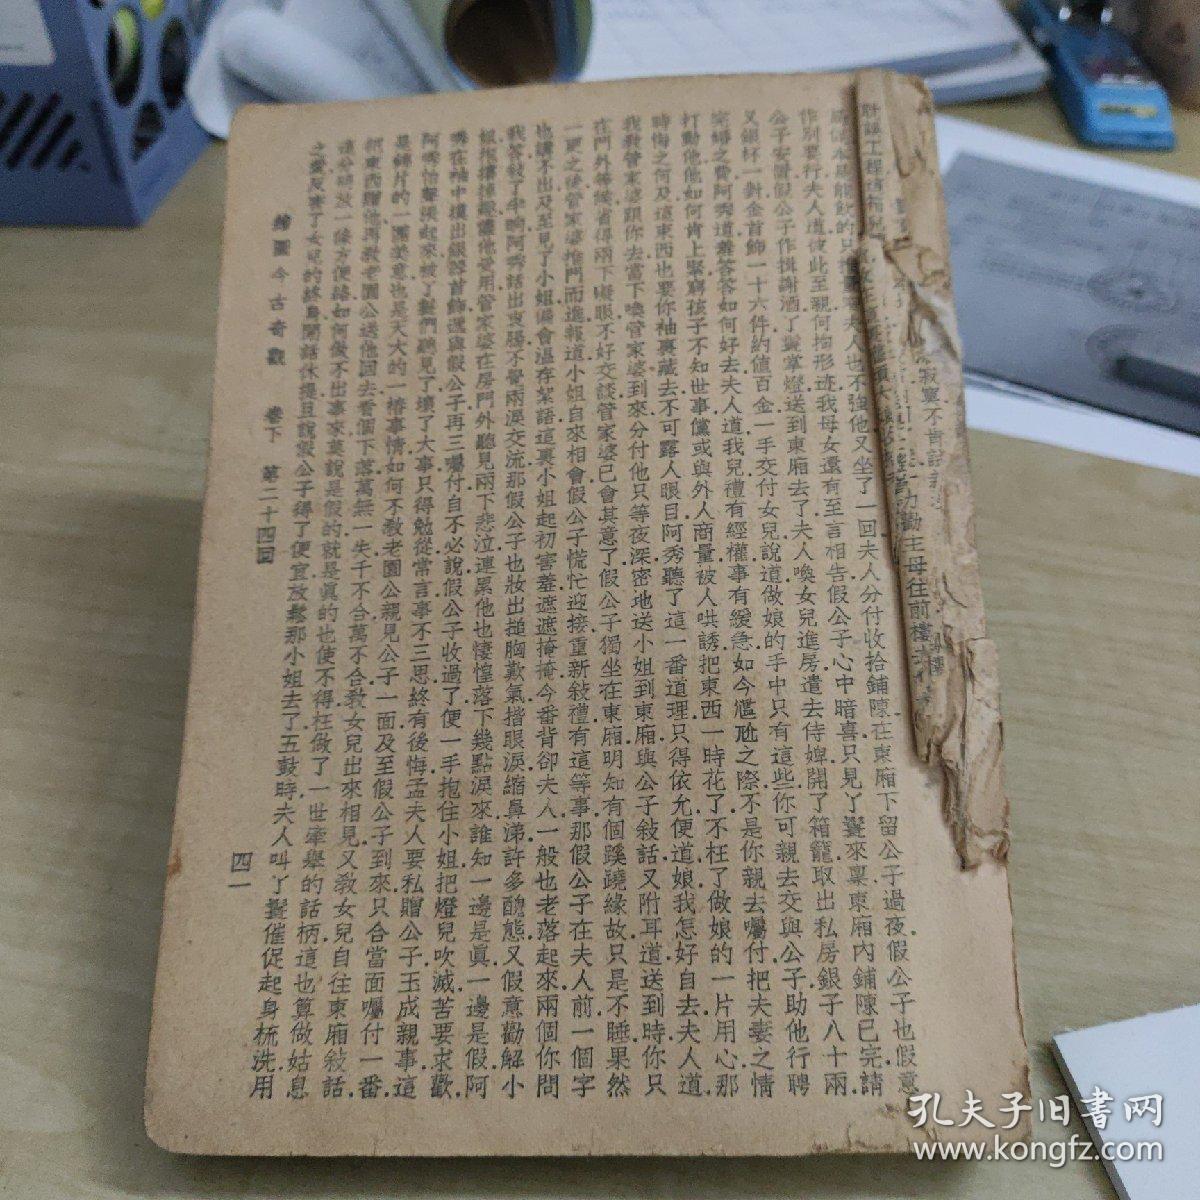 公子過夜假公子也假意
夫人也不強他又坐了一回夫人分付收拾鋪陳在東廂下留
作別要行夫人道彼此至親何拘形迹我母女還有至言相告假公子心中暗喜只見丫鬟來稟東廂內鋪陳已完請
公子安置假公子作揖謝酒了鬟掌燈送到東廂去了夫人喚女兒進房遣去侍婢開了箱籠取出私房銀子八十兩
又銀杯一對金首飾一十六件約値百金一手交付女兒說道做娘的手中只有這些你可親去交與公子助他行聘
完婚之費阿秀道羞答答如何好去夫人道我兒禮有經權事有緩急如今尷尬之際不是你親去囑付把夫妻之情
打動他他如何肯上緊窮孩子不知世事儻或與外人商量被人哄誘把東西一時花了不枉了做娘的一片用心那
時悔之何及這東西也要你袖裏藏去不可露人眼目阿秀聽了這一番道理只得依允便道娘我怎好自去夫人道
我教管家婆跟你去當下喚管家婆到來分付他只等夜深密地送小姐到東廂與公子敍話又附耳道送到時你只
在門外等候省得兩下礙眼不好交談管家婆已會其意了假公子獨坐在東廂明知有個蹊蹺緣故只是不睡果然
一更之後管家婆推門而進報道小姐自來相會假公子慌忙迎接重新敍禮有這等事那假公子在夫人前一個字
也講不出及至見了小姐偏會溫存絮語這裏小姐起初害羞遮遮掩掩今番背卻夫人一般也老落起來兩個你問
我答敍了半晌阿秀話出衷腸不覺兩淚交流那假公子也妝出搥胸歎氣揩眼淚縮鼻涕許多醜態又假意勸解小
姐抱摟綽趣儘他受用管家婆在房門外聽見兩下悲泣連累他也悽惶落下幾點淚來誰知一邊是眞一邊是假阿
秀在袖中摸出銀兩首飾遞與假公子再三囑付自不必說假公子收過了便一手抱住小姐把燈兒吹滅苦要求歡
阿秀怕聲張起來被丫鬟們聽見了壞了大事只得勉從常言事不三思終有後悔孟夫人要私贈公子玉成親事這
是錦片的一團美意也是天大的一樁事情如何不敎老園公親見公子一面及至假公子到來只合當面囑付一番
把東西贈他再敎老園公送他回去看個下落萬無一失千不合萬不合敎女兒出來相見又敎女兒自往東廂敍話
這分明放一條方便路如何做不出事來莫說是假的就是眞的也使不得枉做了一世牽舉的話柄這也算做姑息
之愛反害了女兒的終身閒話休提且說假公子得了便宜放鬆那小姐去了五鼓時夫人叫丫鬟催促起身梳洗用
繪圖今古奇觀 卷下 第二十四回 四一
孔夫子旧书网
www.kongfz.com